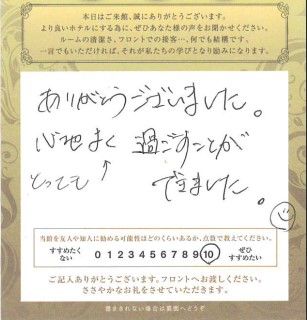 本日はご来館、誠にありがとうございます。
より良いホテルにする為に、ぜひあなた様の声をお聞かせください。
ルームの清潔さ、フロントでの接客…、何でも結構です。
一言でもいただければ、それが私たちの学びとなり励みになります。
ありがとうございました。
心地よく 過ごすことが
とっても できました。
当館を友人や知人に勧める可能性はどのくらいあるか、点数で教えてください。
すすめたくない 0 1 2 3 4 5 6 7 8 9 10 ぜひすすめたい
ご記入ありがとうございます。フロントへお渡しください。
ささやかなお礼をさせていただきます。
書ききれない場合は裏面へどうぞ